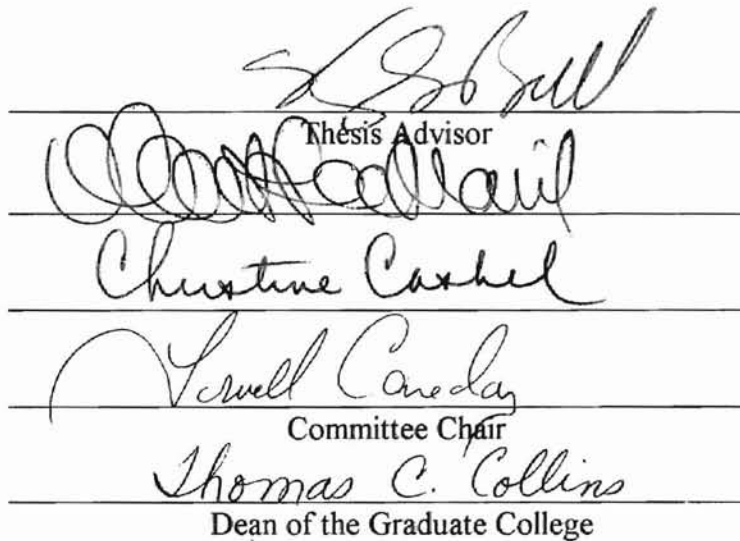 Bull
Thesis Advisor
Christine Cashel
Lowell Caneday
Committee Chair
Thomas C. Collins
Dean of the Graduate College